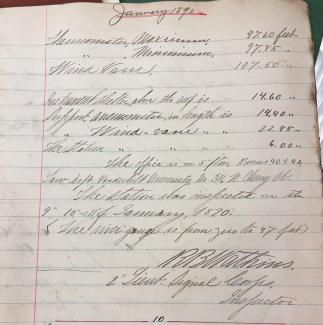 January 1890.
Thermometer, Maximum, 97.60 feet
" Minimum, 97.85 "
Wind Vane, 107.50 "
Instrument shelter above the roof is 14.60 "
Support anemometer in length is 14.40 "
" Wind-vane " " 22.85 "
" " " 6.00 "
The office is on 5 floor, Rooms 40 & 42
Law Dept. Vanderbilt University No. 314 N. Cherry St.
The station was inspected on the
9", 10" of January, 1890.
(The river gauge is from zero to 47 feet)
Watkins.
2" Lieut. Signal Corps,
Inspector
10